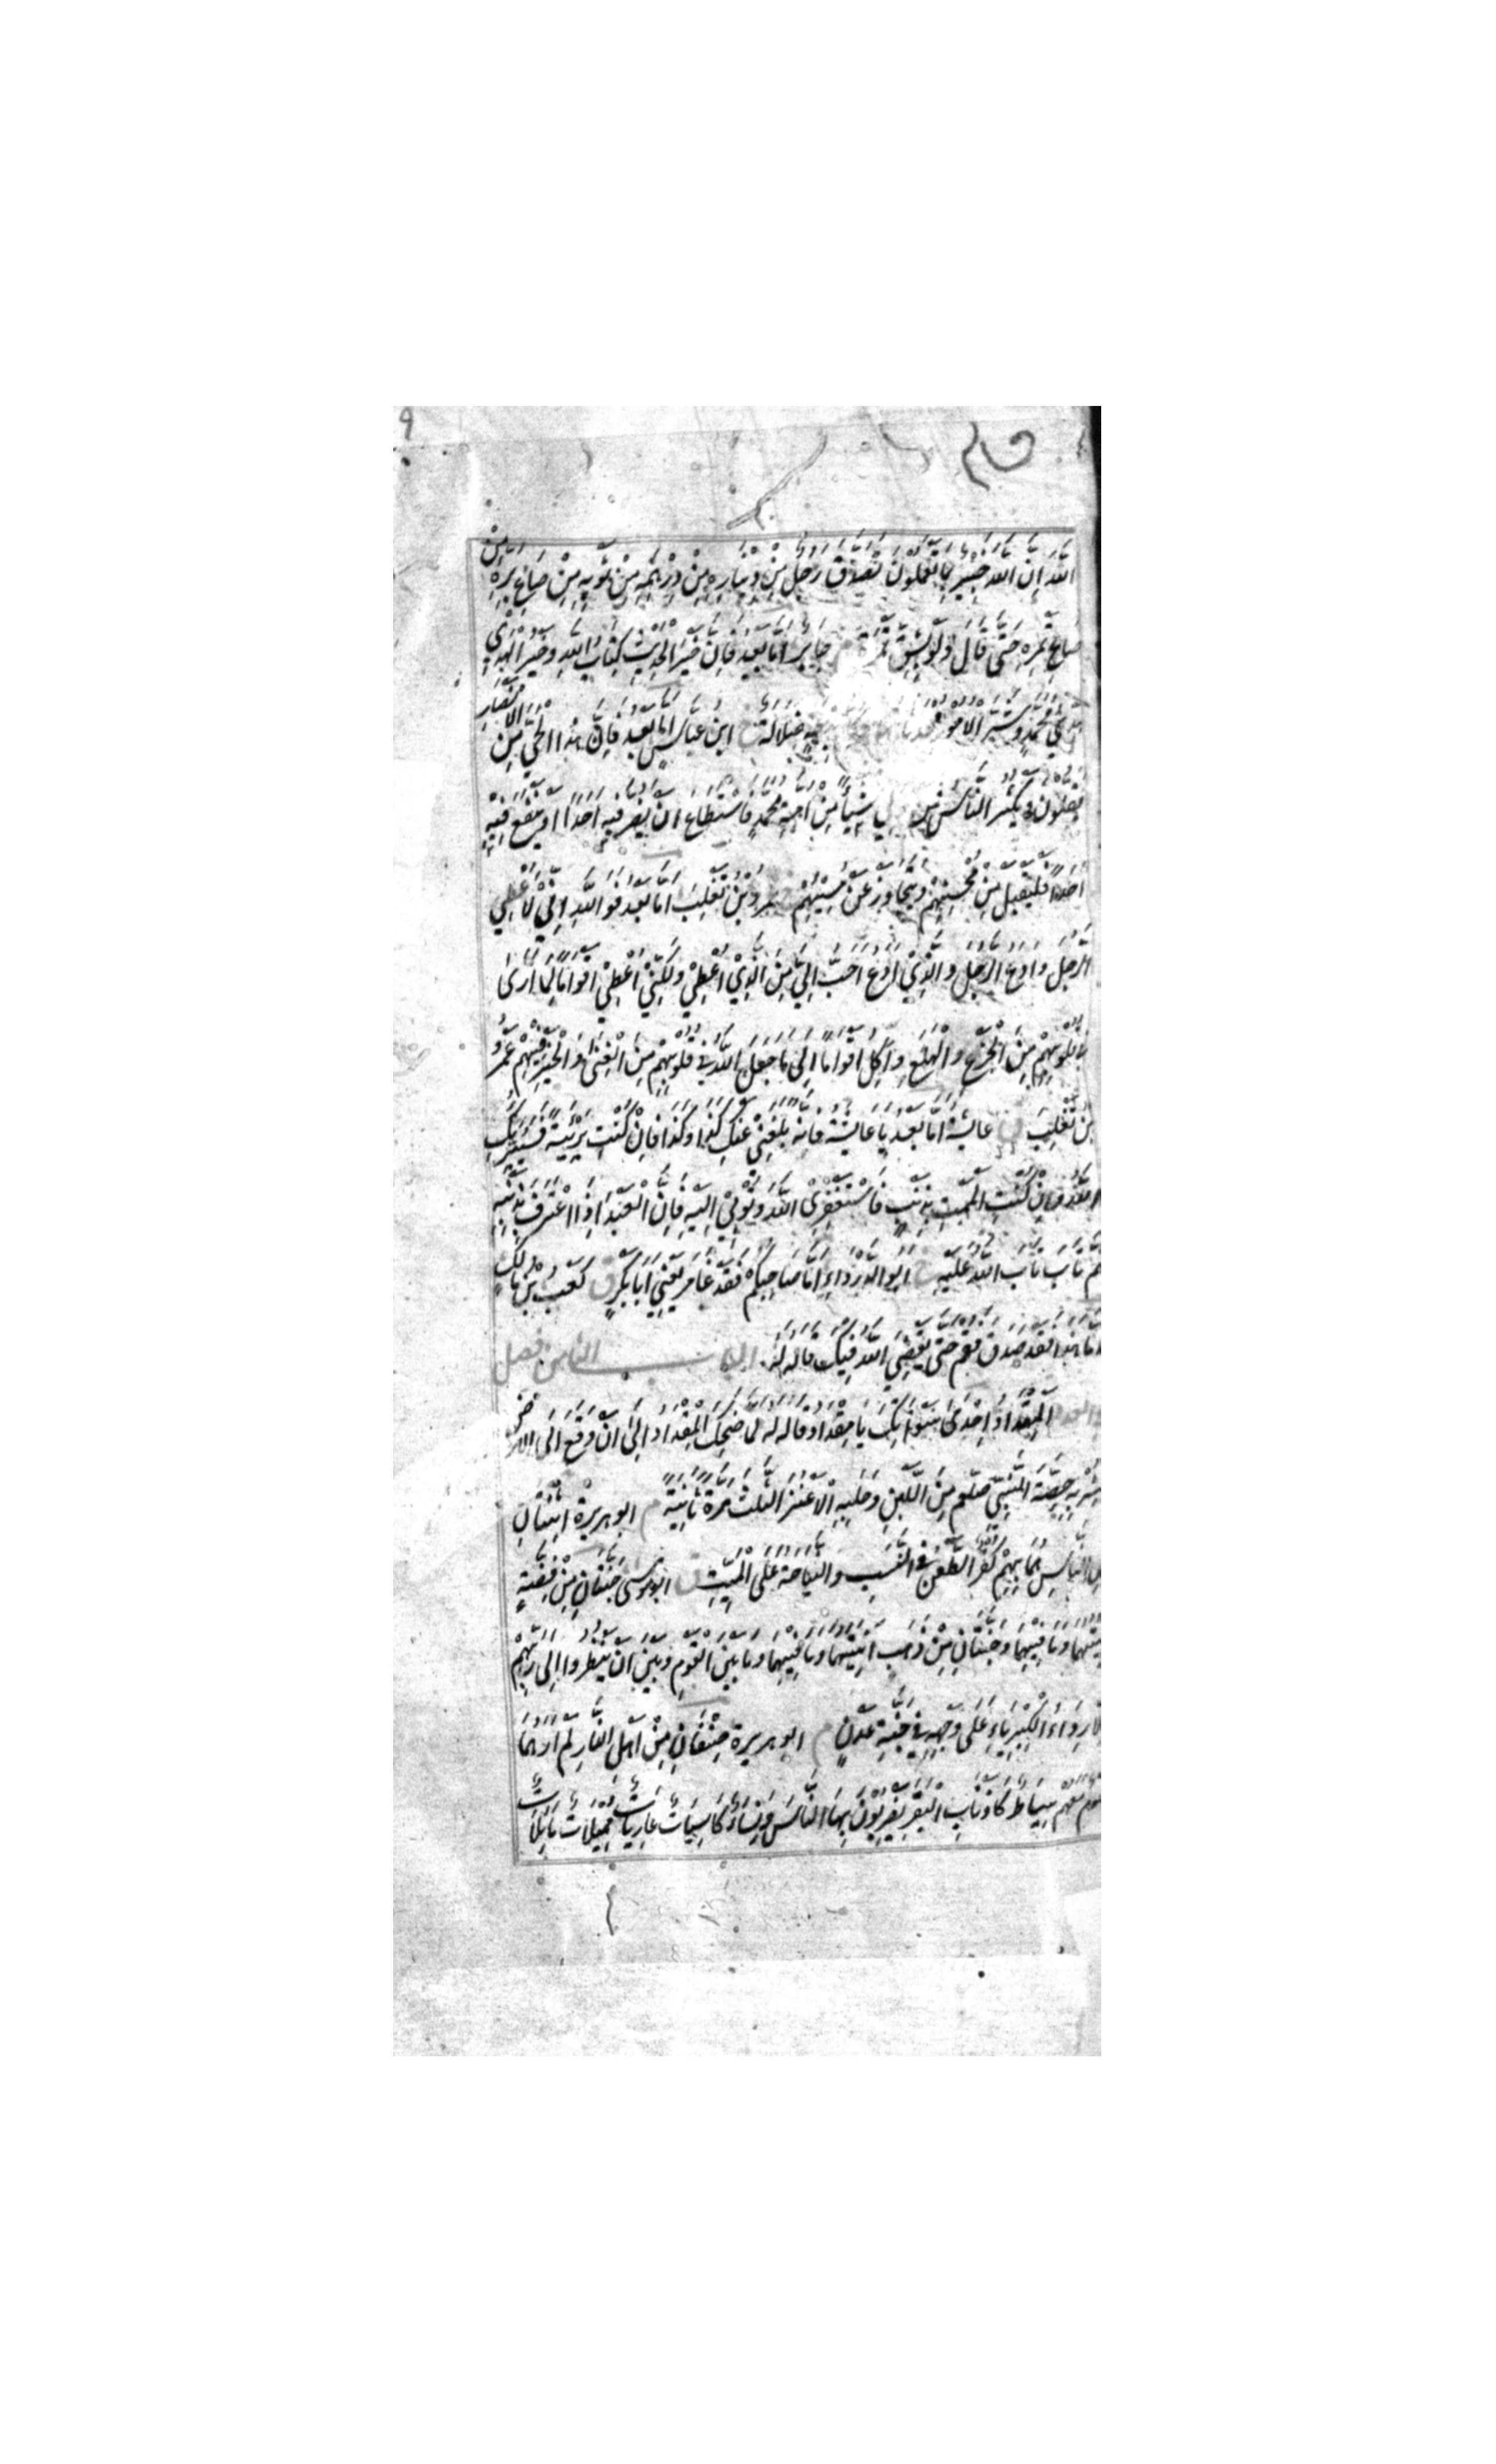 ٩
اللّٰهَ اِنَّ اللّٰهَ خَبِيْرٌ بِمَا تَعْمَلُوْنَ تَصَدَّقَ رَجُلٌ مِنْ دِيْنَارِهِ مِنْ دِرْهَمِهِ مِنْ ثَوْبِهِ مِنْ صَاعِ بُرِّهِ مِنْ
صَاعِ تَمْرِهِ حَتّٰى قَالَ وَلَوْ بِشِقِّ تَمْرَةٍ م جَابِرٌ اَمَّا بَعْدُ فَاِنَّ خَيْرَ الْحَدِيْثِ كِتَابُ اللّٰهِ وَخَيْرَ الْهَدْيِ
هَدْيُ مُحَمَّدٍ وَشَرَّ الْاُمُوْرِ ضَلَالَةٌ خ ابن عَبَّاسٍ اَمَّا بَعْدُ فَاِنَّ هٰذَا الْحَيَّ مِنَ الْاَنْصَارِ
يَقِلُّوْنَ وَيَكْثُرُ النَّاسُ شَيْئًا مِنْ اُمَّةِ مُحَمَّدٍ فَاسْتَطَاعَ اَنْ يَضُرَّ فِيْهِ اَحَدًا اَوْ يَنْفَعَ فِيْهِ
اَحَدًا فَلْيَقْبَلْ مِنْ مُحْسِنِهِمْ وَيَتَجَاوَزْ عَنْ مُسِيْئِهِمْ خ عمرو بْنُ تَغْلِبَ اَمَّا بَعْدُ فَوَاللّٰهِ اِنِّيْ لَاُعْطِي
الرَّجُلَ وَاَدَعُ الرَّجُلَ وَالَّذِيْ اَدَعُ اَحَبُّ اِلَيَّ مِنَ الَّذِيْ اُعْطِيْ وَلٰكِنِّيْ اُعْطِيْ اَقْوَامًا لِمَا اَرٰى
فِي قُلُوْبِهِمْ مِنَ الْجَزَعِ وَالْهَلَعِ وَاَكِلُ اَقْوَامًا اِلٰى مَا جَعَلَ اللّٰهُ فِيْ قُلُوْبِهِمْ مِنَ الْغِنٰى وَالْخَيْرِ فِيْهِمْ عَمْرُو
بْنُ تَغْلِبَ ق عَائِشَةُ اَمَّا بَعْدُ يَا عَائِشَةُ فَاِنَّهُ بَلَغَنِيْ عَنْكِ كَذَا وَكَذَا فَاِنْ كُنْتِ بَرِيْئَةً فَسَيُبَرِّئُكِ
اللّٰهُ وَاِنْ كُنْتِ اَلْمَمْتِ بِذَنْبٍ فَاسْتَغْفِرِي اللّٰهَ وَتُوْبِيْ اِلَيْهِ فَاِنَّ الْعَبْدَ اِذَا اعْتَرَفَ بِذَنْبِهِ
ثُمَّ تَابَ تَابَ اللّٰهُ عَلَيْهِ خ ابو الدَّرْدَاءِ اَمَّا صَاحِبُكُمْ فَقَدْ غَامَرَ يَعْنِيْ اَبَا بَكْرٍ ق كَعْبُ بْنُ مَالِكٍ
اَمَّا هٰذَا فَقَدْ صَدَقَ فَقُمْ حَتّٰى يَقْضِيَ اللّٰهُ فِيْكَ قَالَهُ لَهُ الباب الثامن فصل
الْمِقْدَادُ اِحْدٰى سَوْآتِكَ يَا مِقْدَادُ قَالَهُ لَهُ لَمَّا ضَحِكَ الْمِقْدَادُ اِلٰى اَنْ وَقَعَ اِلَى الْاَرْضِ
شُرْبِهِ حِصَّةَ النَّبِيِّ صلعم مِنَ اللَّبَنِ وَحَلْبِهِ الْاَعْنُزَ الثَّلٰثَ مَرَّةً ثَانِيَةً م ابو هريرة اثْنَتَانِ
فِي النَّاسِ هُمَا بِهِمْ كُفْرٌ الطَّعْنُ فِي النَّسَبِ وَالنِّيَاحَةُ عَلَى الْمَيِّتِ ق ابو موسى جَنَّتَانِ مِنْ فِضَّةٍ
آنِيَتُهُمَا وَمَا فِيْهِمَا وَجَنَّتَانِ مِنْ ذَهَبٍ آنِيَتُهُمَا وَمَا فِيْهِمَا وَمَا بَيْنَ الْقَوْمِ وَبَيْنَ اَنْ يَنْظُرُوْا اِلٰى رَبِّهِمْ
اِلَّا رِدَاءُ الْكِبْرِيَاءِ عَلٰى وَجْهِهِ فِيْ جَنَّةِ عَدْنٍ م ابو هريرة صِنْفَانِ مِنْ اَهْلِ النَّارِ لَمْ اَرَهُمَا
قَوْمٌ مَعَهُمْ سِيَاطٌ كَاَذْنَابِ الْبَقَرِ يَضْرِبُوْنَ بِهَا النَّاسَ وَنِسَاءٌ كَاسِيَاتٌ عَارِيَاتٌ مُمِيْلَاتٌ مَائِلَاتٌ